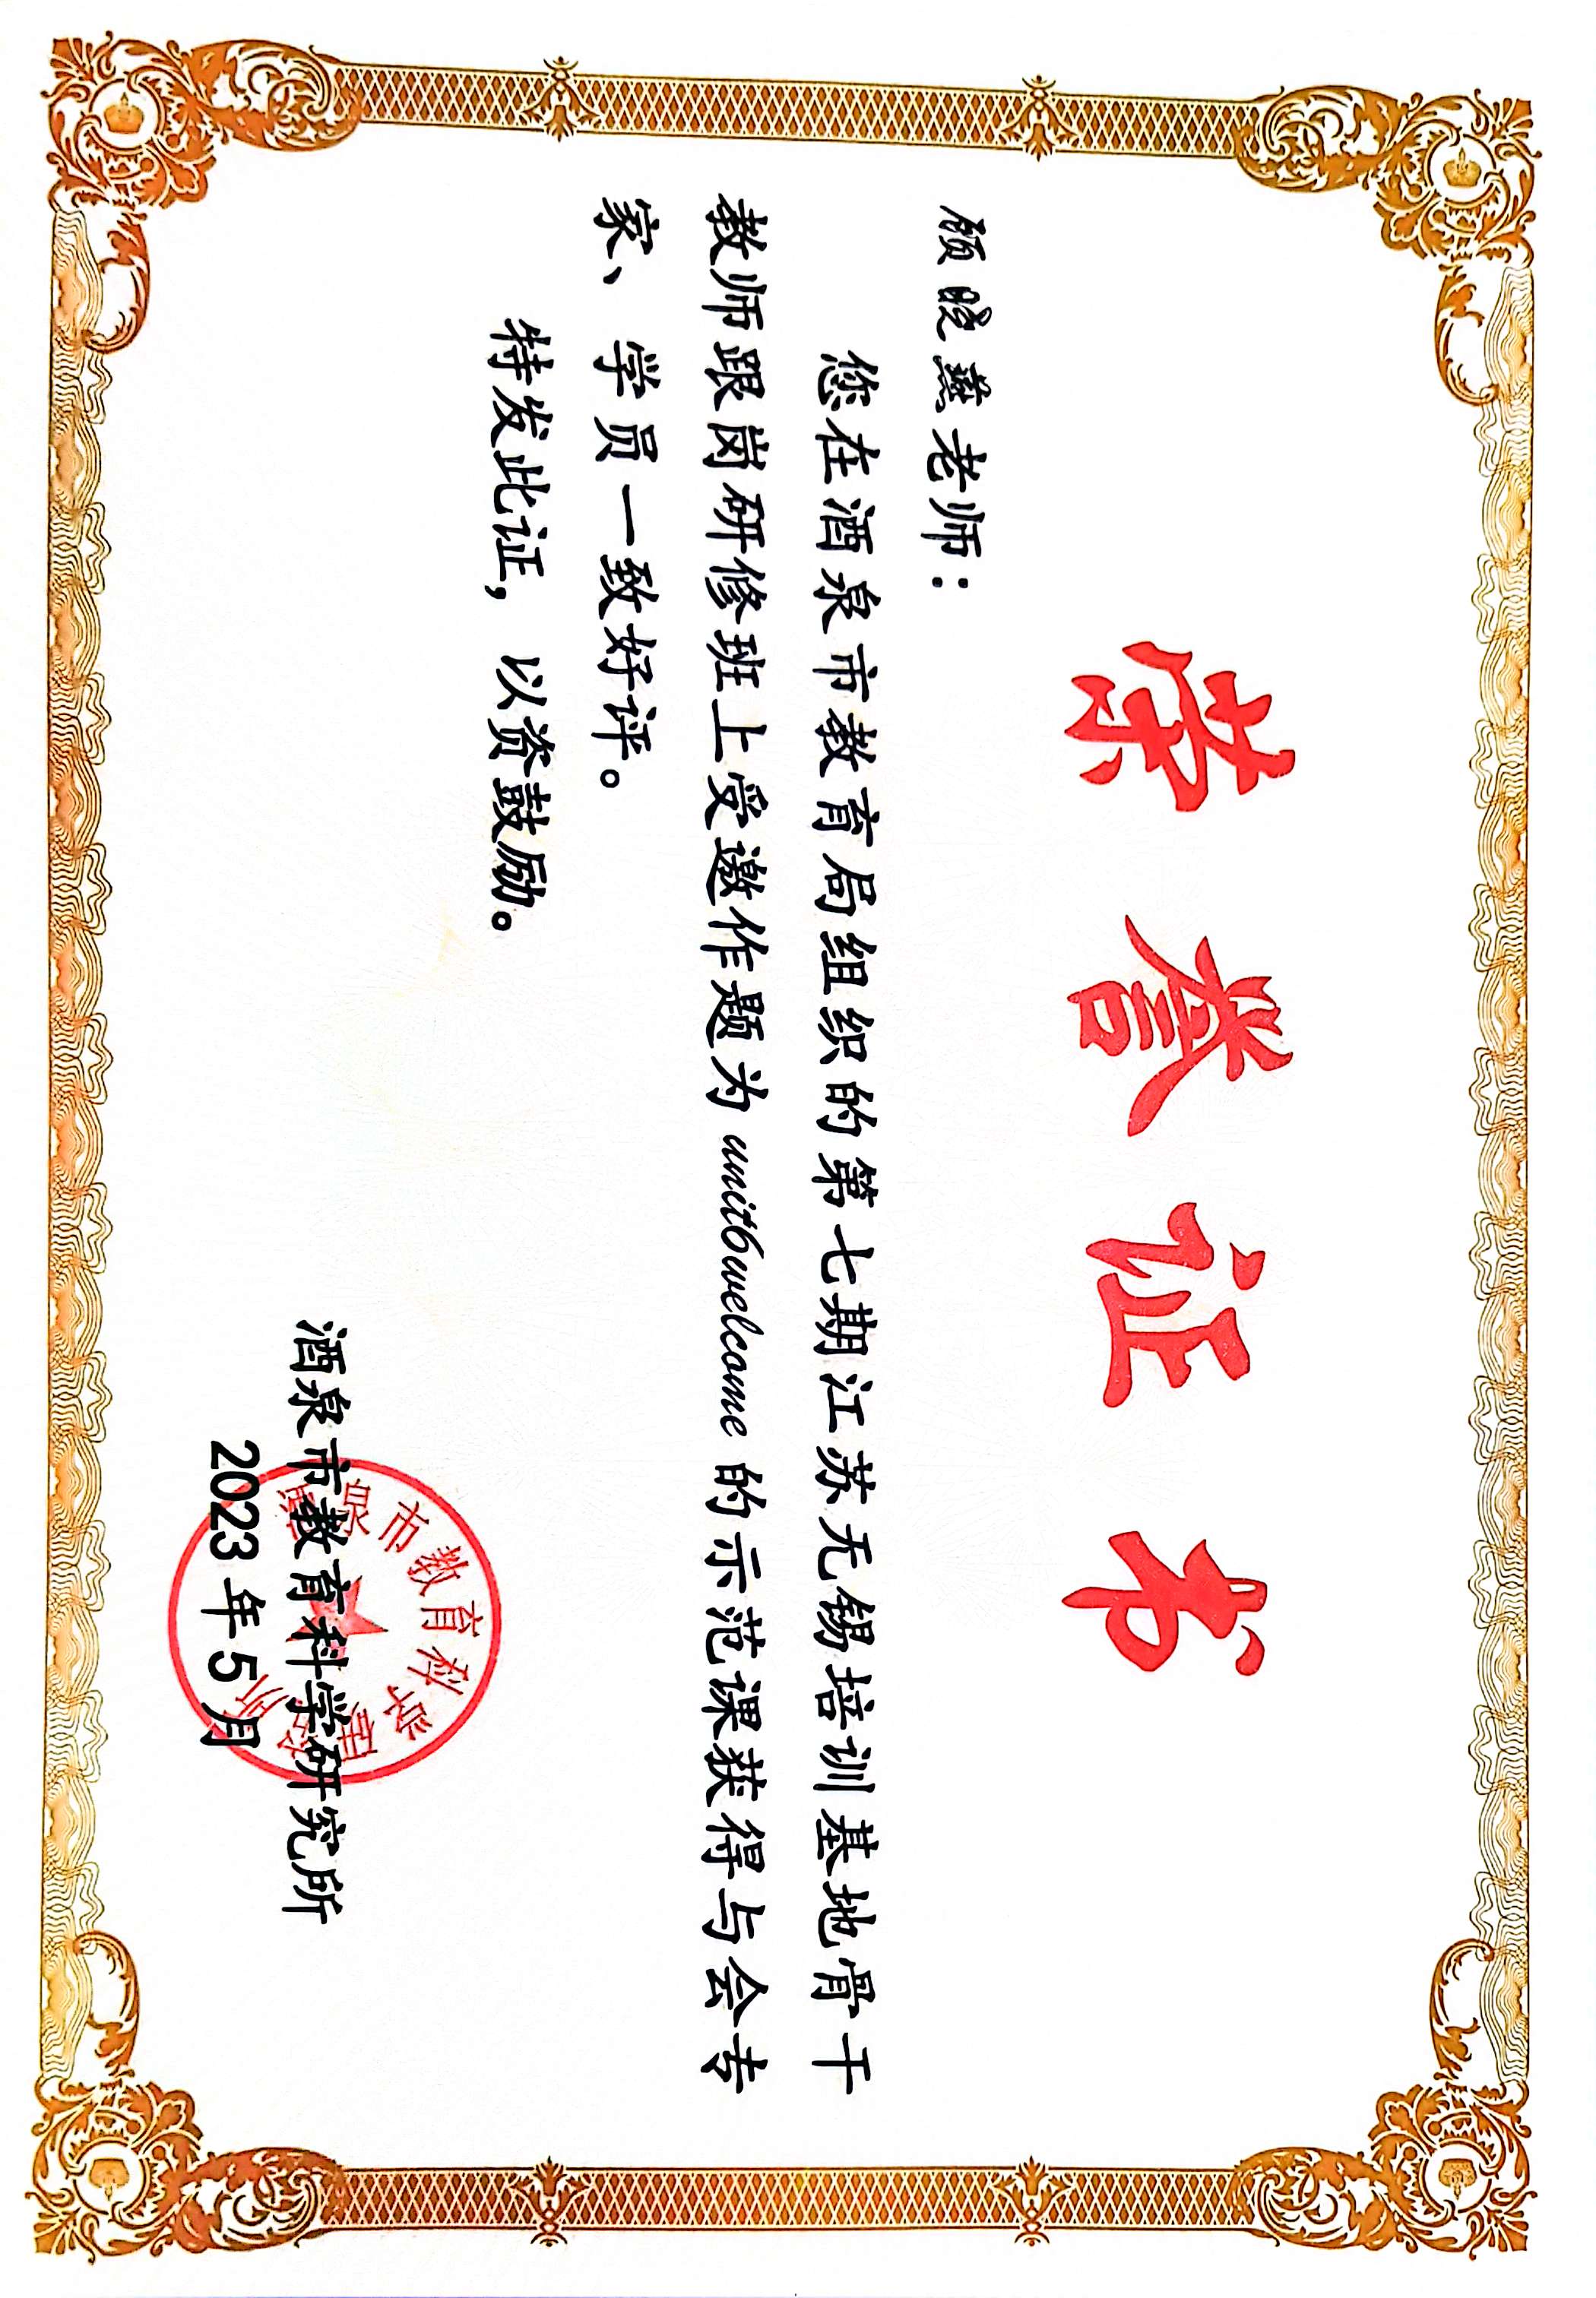 荣誉证书
顾晓燕老师：
您在酒泉市教育局组织的第七期江苏无锡培训基地骨干
教师跟岗研修班上受邀作题为 unit6welcome 的示范课获得与会专
家、学员一致好评。
特发此证，以资鼓励。
酒泉市教育科学研究所
2023 年 5 月
酒泉市教育科学研究所